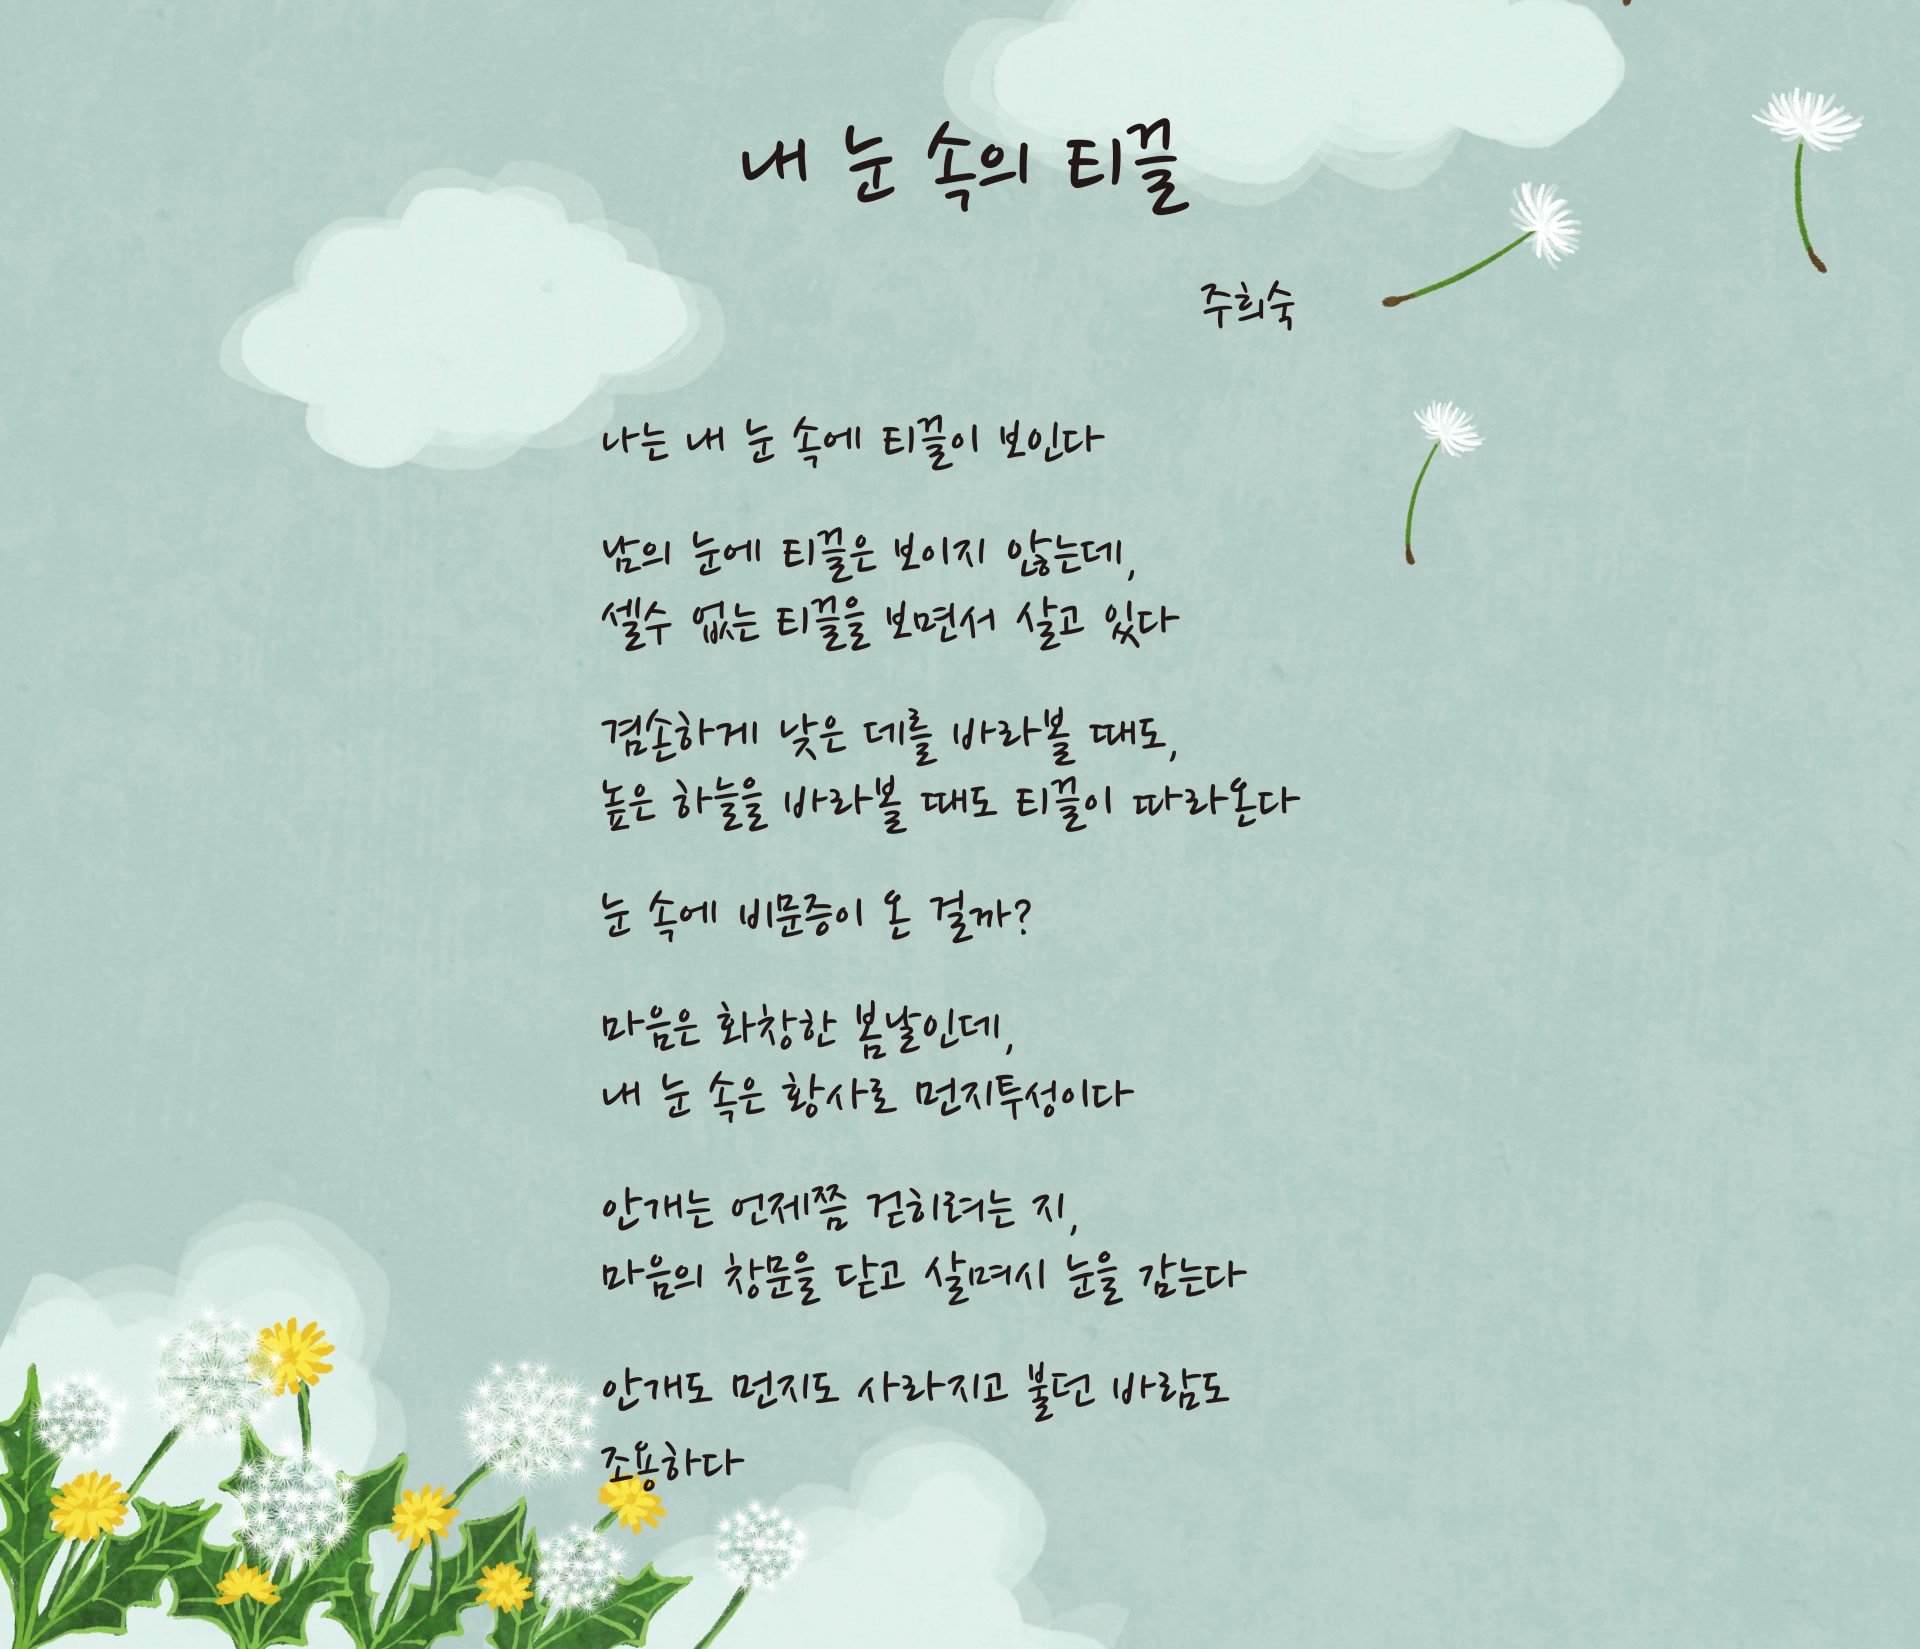 내 눈 속의 티끌
주희숙
나는 내 눈 속에 티끌이 보인다
남의 눈에 티끌은 보이지 않는데,
셀수 없는 티끌을 보면서 살고 있다
겸손하게 낮은 데를 바라볼 때도,
높은 하늘을 바라볼 때도 티끌이 따라온다
눈 속에 비문증이 온 걸까?
마음은 화창한 봄날인데,
내 눈 속은 황사로 먼지투성이다
안개는 언제쯤 걷히려는 지,
마음의 창문을 닫고 살며시 눈을 감는다
안개도 먼지도 사라지고 불던 바람도
조용하다